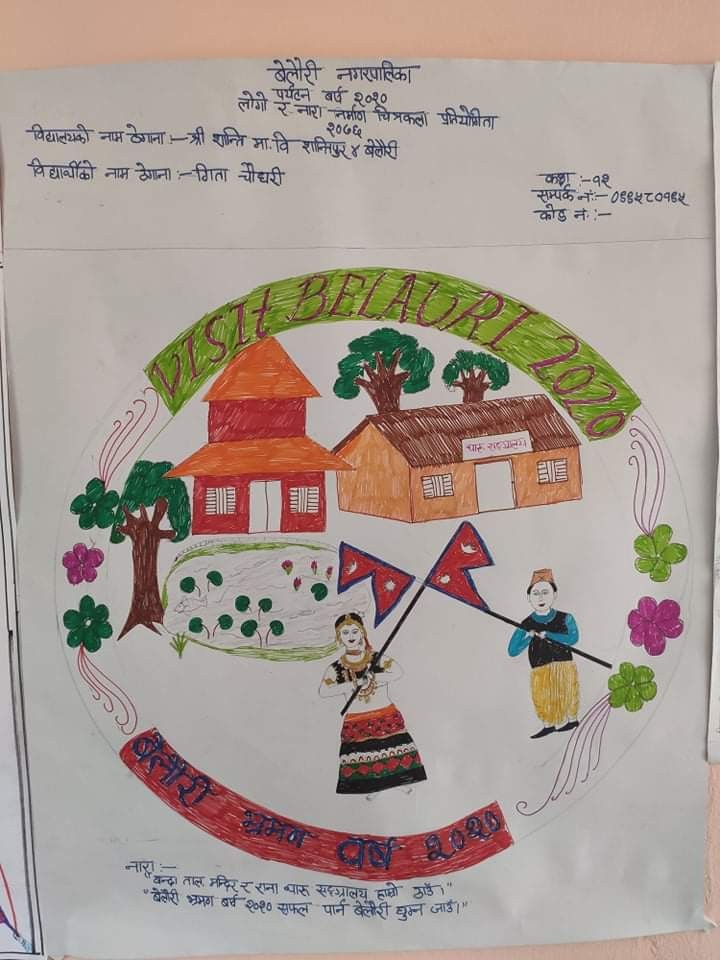 बेलौरी नगरपालिका
पर्यटन बर्ष २०२०
लोगो र नारा निर्माण चित्रकला प्रतियोगिता
२०७६
विद्यालयको नाम ठेगाना :- श्री शान्ति मा.वि शान्तिपुर ४ बेलौरी
विद्यार्थीको नाम ठेगाना :- गिता चौधरी
कक्षा :- १२
सम्पर्क नं :-
कोड नं. :-
VISIT BELAURI 2020
थारू सङग्रालय
बेलौरी भ्रमण वर्ष २०२०
नारा :-
"बन्डा ताल मन्दिर र राना थारू सङग्रालय हाम्रो ठाउँ।"
"बेलौरी भ्रमण बर्ष २०२० सफल पार्न बेलौरी घुम्न जाउँ।"